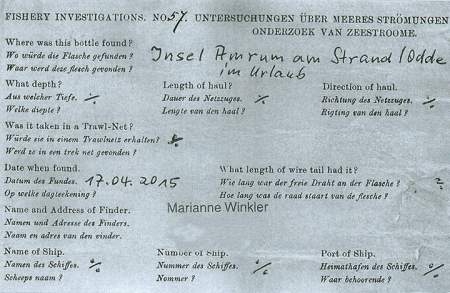 FISHERY INVESTIGATIONS. NO. 57. UNTERSUCHUNGEN ÜBER MEERES STRÖMUNGEN
ONDERZOEK VAN ZEESTROOME.
Where was this bottle found?
Wo würde die Flasche gefunden?
Waar werd deze flesch gevonden?
Insel Amrum am Strand/Odde
im Urlaub
What depth? Length of haul? Direction of haul.
Aus welcher Tiefe. ./. Dauer des Netzzuges. ./. Richtung des Netzzuges. ./.
Welke diepte? Lengte van den haal? Rigting van den haal?
Was it taken in a Trawl-Net?
Würde sie in einem Trawlnetz erhalten? ./.
Werd ze in een trek net gevonden?
Date when found. What length of wire tail had it?
Datum des Fundes. 17.04.2015 Wie lang war der freie Draht an der Flasche? ?
Op welke dagteekening? Hoe lang was de raad staart van de flesch?
Name and Address of Finder. Marianne Winkler
Namen und Adresse des Finders.
Naam en adres van den vinder.
Name of Ship. Number of Ship. Port of Ship.
Namen des Schiffes. ./. Nummer des Schiffes. ./. Heimathafen des Schiffes. ./.
Scheeps naam? Nommer? Waar behoorende?